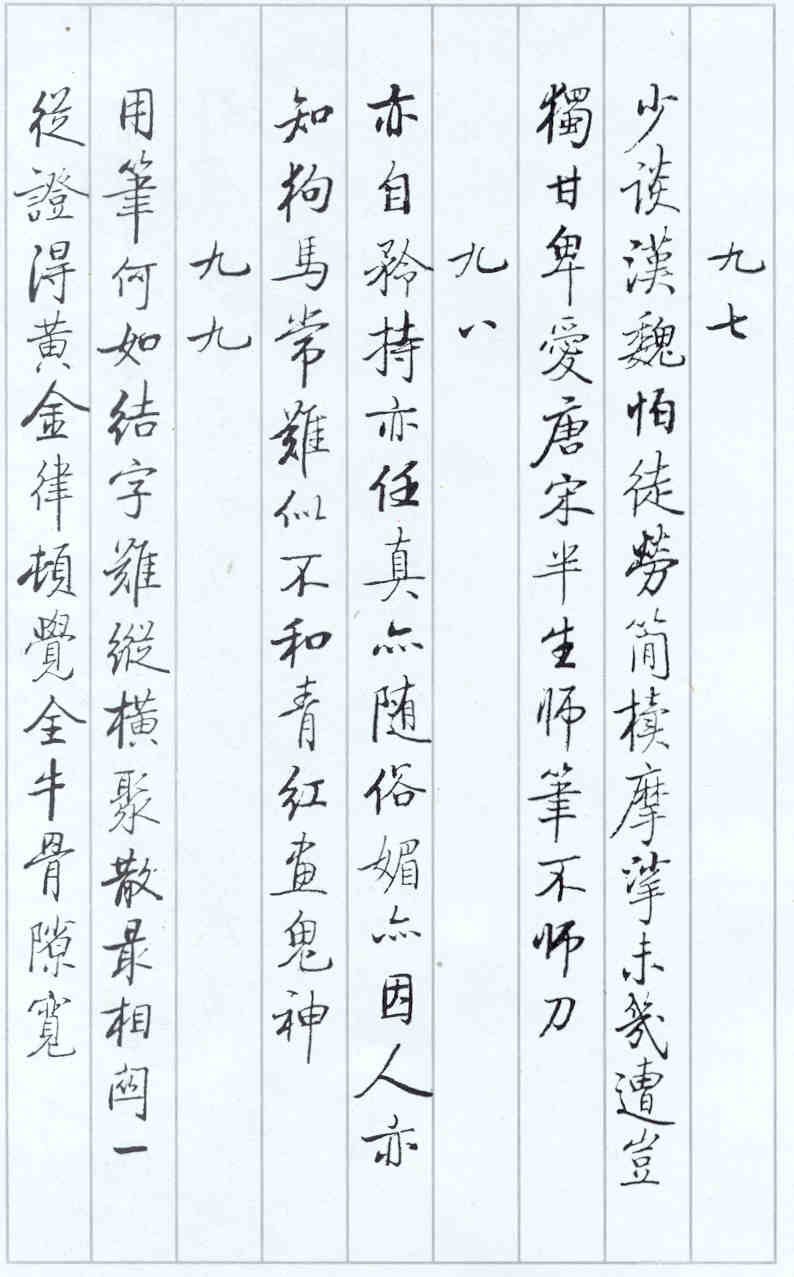 九七
少談漢魏怕徒勞簡櫝摩挲未幾遭豈
獨甘卑愛唐宋半生师筆不师刀
九八
亦自矜持亦任真亦随俗媚亦因人亦
知狗馬常難似不和青红畫鬼神
九九
用筆何如結字難縱橫聚散最相関一
從證得黃金律頓覺全牛骨隙寬